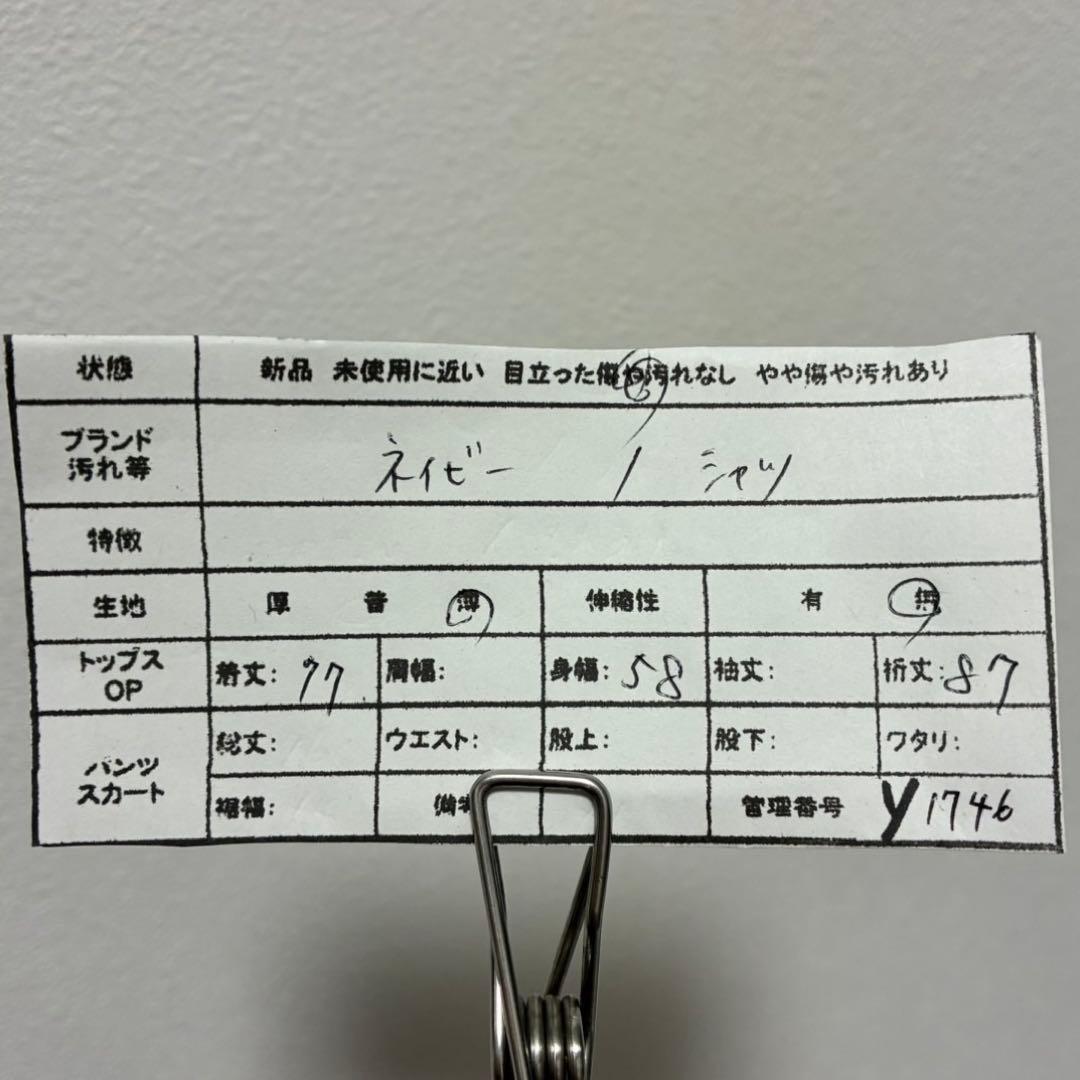 状態 新品 未使用に近い 目立った傷や汚れなし やや傷や汚れあり
ブランド
汚れ等 ネイビー / シャツ
特徴
生地 厚 普 薄 伸縮性 有 無
トップス
OP 着丈: 77 肩幅: 身幅: 58 袖丈: 裄丈: 87
パンツ
スカート 総丈: ウエスト: 股上: 股下: ワタリ:
裾幅: 備 管理番号 y1746